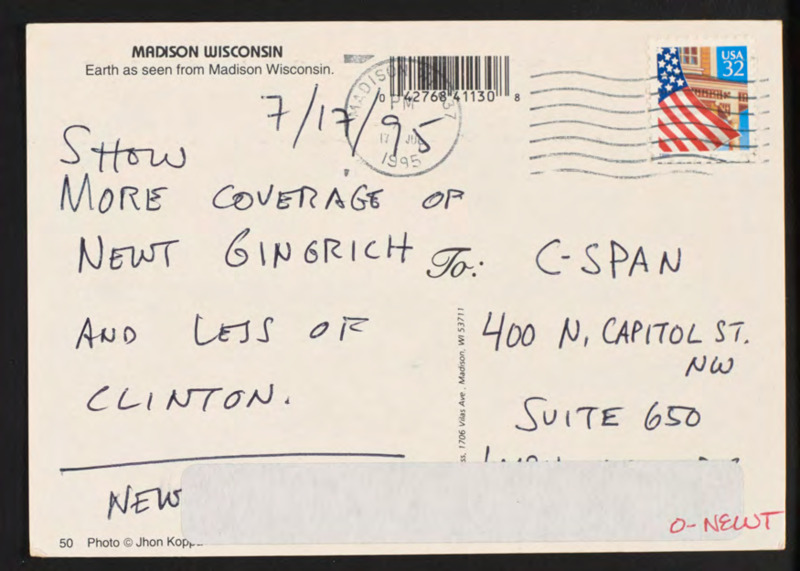 MADISON WISCONSIN
Earth as seen from Madison Wisconsin.
7/17/95
MADISON
PM
17
1995
0 42768 41130 8
USA
32
SHOW
MORE COVERAGE OF
NEWT GINGRICH
AND LESS OF
CLINTON.
NEW
To: C-SPAN
400 N, CAPITOL ST.
NW
SUITE 650
1706 Vilas Ave., Madison, WI 53711
O-NEWT
50 Photo © Jhon